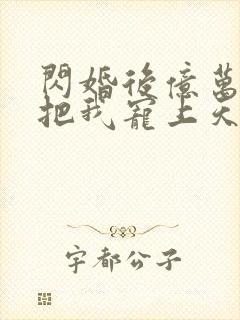 閃婚後億萬
把我寵上天
宇都公子